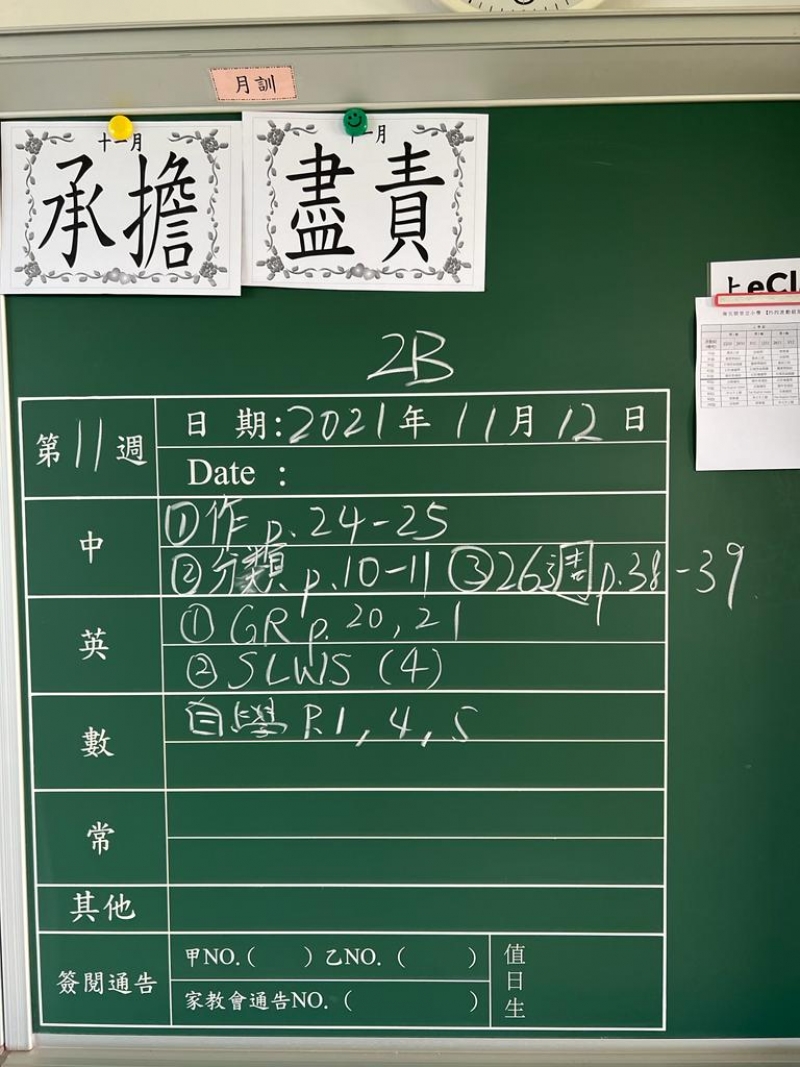 月訓
十一月
承擔
十一月
盡責
上 eCl
2B
第11週
日 期:2021年 11月 12日
Date :
中
①作 p.24-25
②分類 p.10-11 ③26週 p.38-39
英
① GR p.20, 21
② SLWS (4)
數
自學 P.1, 4, 5
常
其他
簽閱通告
甲NO.( ) 乙NO. ( )
家教會通告NO. ( )
值日生